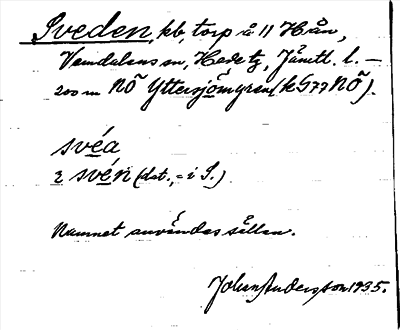 Sveden, kb, torp å 11 Hån,
Vemdalens sn, Hede tg, Jämtl. l. —
200 m NÖ Yttersjömyran (k 577 NÖ).
svéa
2 svén (dat., = i S.)
Namnet användes sällan.
Johan Andersson 1935.